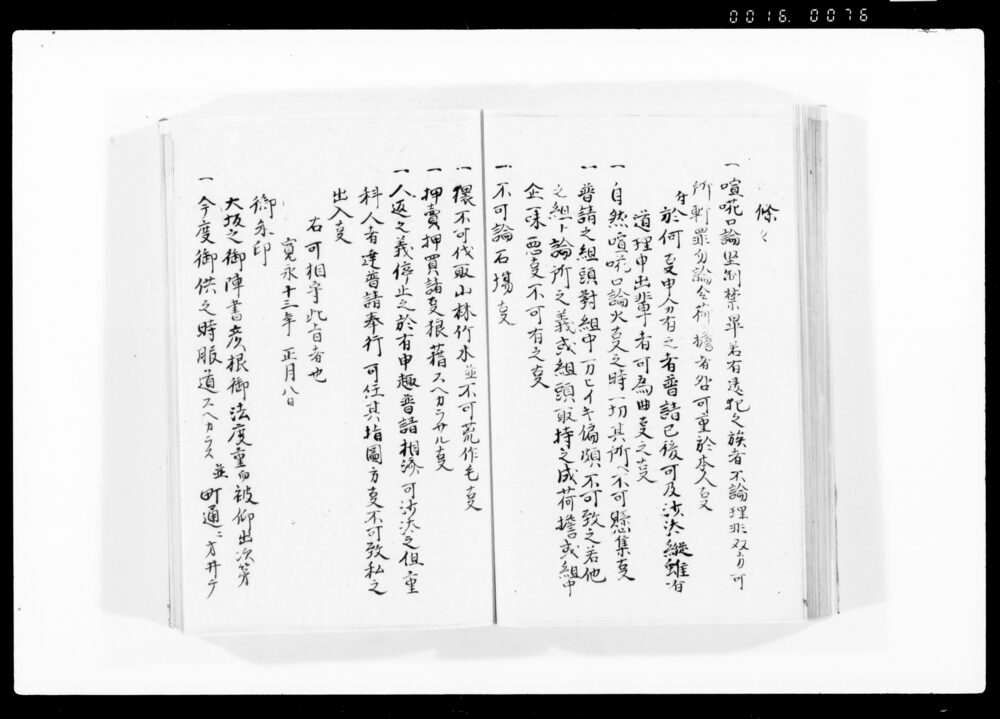 0016. 0076
條々
一 喧𠵅口論堅制禁畢若有違犯之族者不論理非双方可
所斬罪勿論令荷擔者咎可重於本人叓
付於何叓申分有之者普請已後可及沙汰縦雖有
道理申出輩者可為曲叓之叓
一 自然喧𠵅口論火叓之時一切其所ヘ不可懸集叓
一 普請之組頭對組中一刀ヒイキ偏頗不可致之若他
之組ト論所之義或組頭取持之成荷擔或組中
企一味悪叓不可有之叓
一 不可論石場叓
一 猥不可伐取山林竹木並不可荒作毛叓
一 押賣押買諸叓狼藉スヘカラサル叓
一 人返之義停止之於有申趣普請相濟可沙汰之但重
科人者達普請奉行可任其指圖方叓不可致私之
出入叓
右可相守此旨者也
寛永十三年 正月八日
御朱印
大坂之御陣書彦根御法度重而被仰出次第
一 今度御供之時脇道スヘカラス並町通ニ方井テ